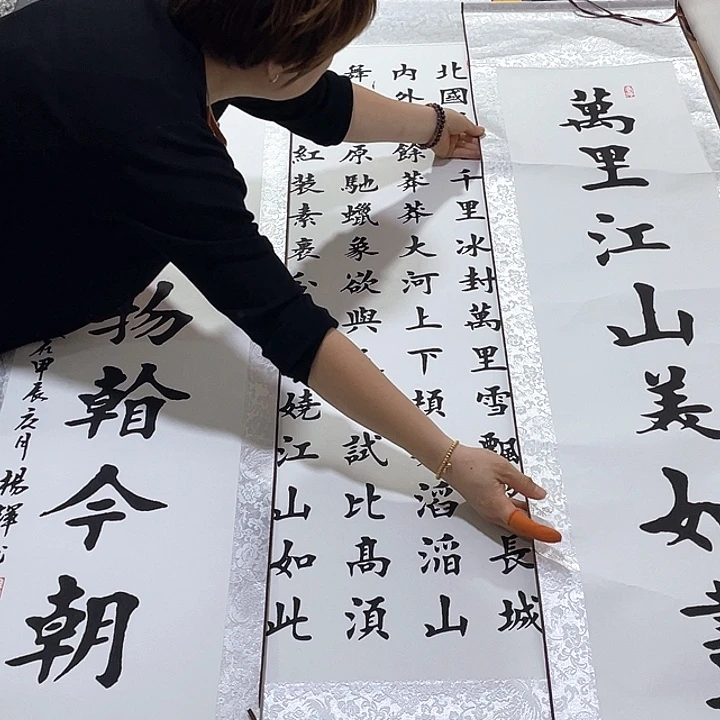 萬里江山美如
北國千里冰封萬里雪飄長城
內外餘莽莽大河上下頓滔滔山
舞原馳蠟象欲與試比高須
紅裝素裹嬈江山如此
今朝
甲辰月楊輝